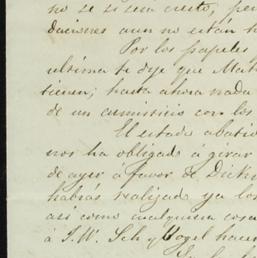 no se si sera cierto, per
daciones aun no están h
Por los papeles
ultima te dije que Mat
tienen; hasta ahora nada
de un comisario con los
El estado abatio
nos ha obligado á girar
de ayer a favor de Dicho
habrás realizado ya los
así como cualquiera cosa
á J. W. Sch y Vogel hacer